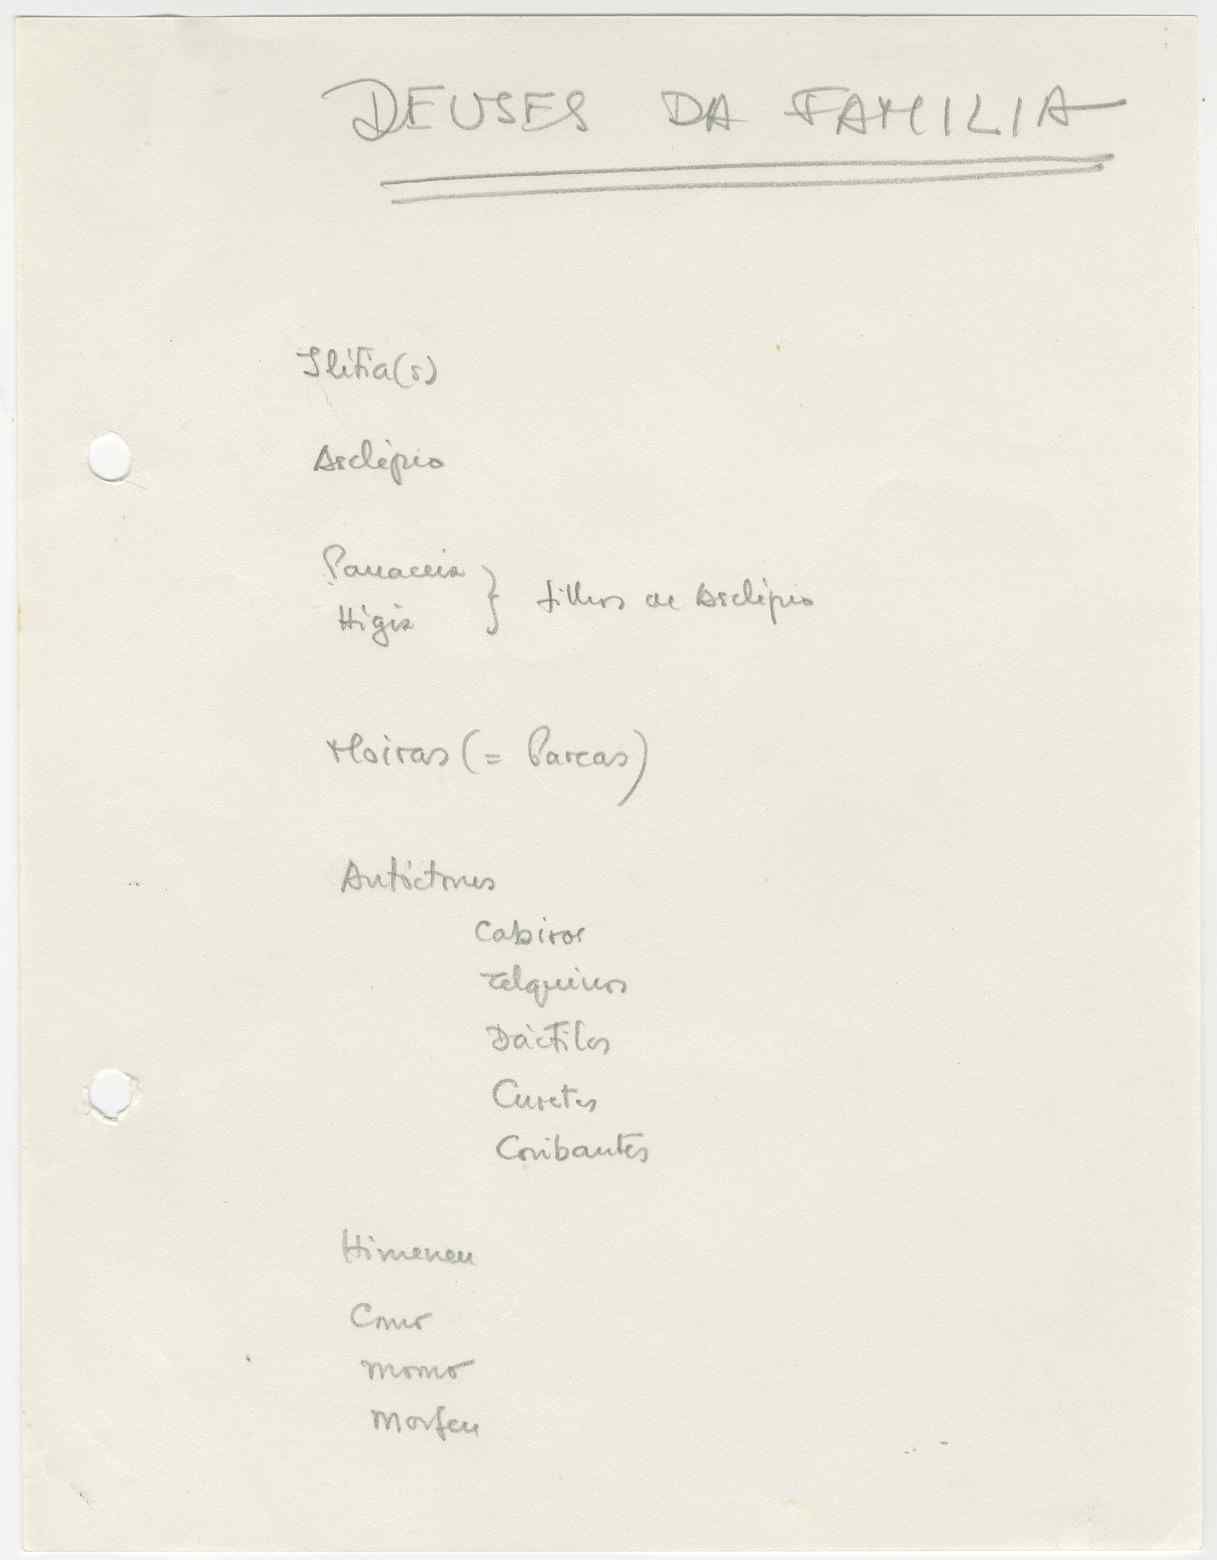 DEUSES DA FAMILIA
Ilitia(s)
Asclépio
Panaceia
Higia } filhos de Asclépio
Moiras (= Parcas)
Autóctones
Cabiros
Telquinos
Dáctilos
Curetes
Coribantes
Himeneu
Como
Momo
Morfeu